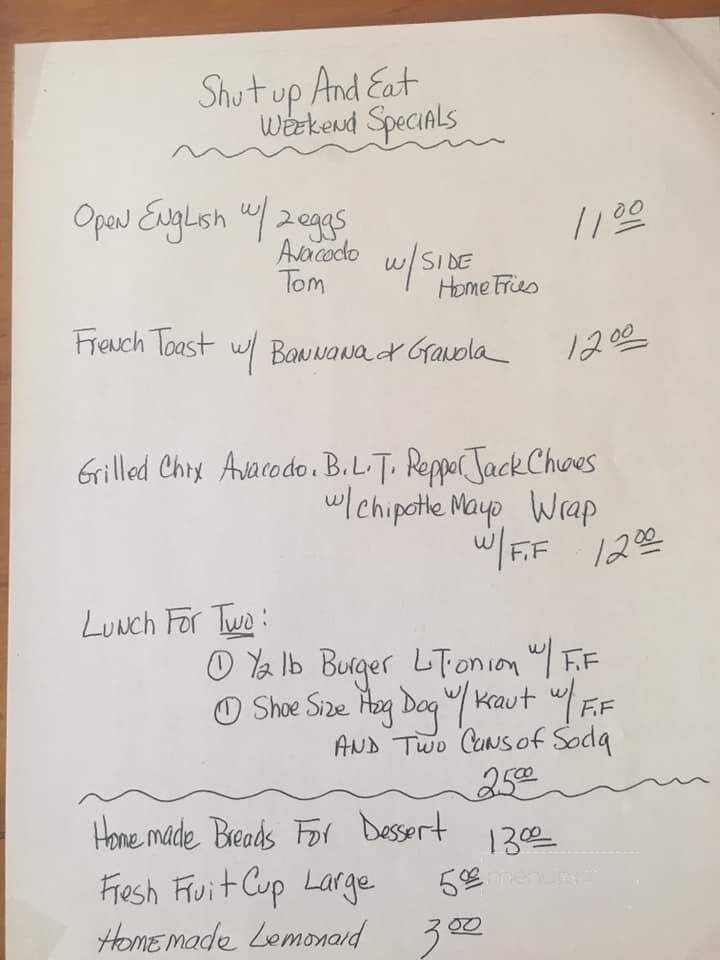 Shut up And Eat
WEEKEND SPECIALS
OPEN ENGLISH w/ 2 eggs 11.00
Avacodo w/ SIDE
Tom Home Fries
French Toast w/ BANNANA & Granola 12.00
Grilled Chix Avacodo. B.L.T. Pepper Jack Chees
w/ Chipotle Mayo Wrap
w/ F.F 12.00
LUNCH FOR Two:
① 1/2 lb Burger L.T. onion w/ F.F
① Shoe Size Hog Dog w/ Kraut w/ F.F
AND Two Cans of Soda
25.00
Home made Breads For Dessert 13.00
Fresh Fruit Cup Large 5.00
HOMEmade Lemonaid 3.00